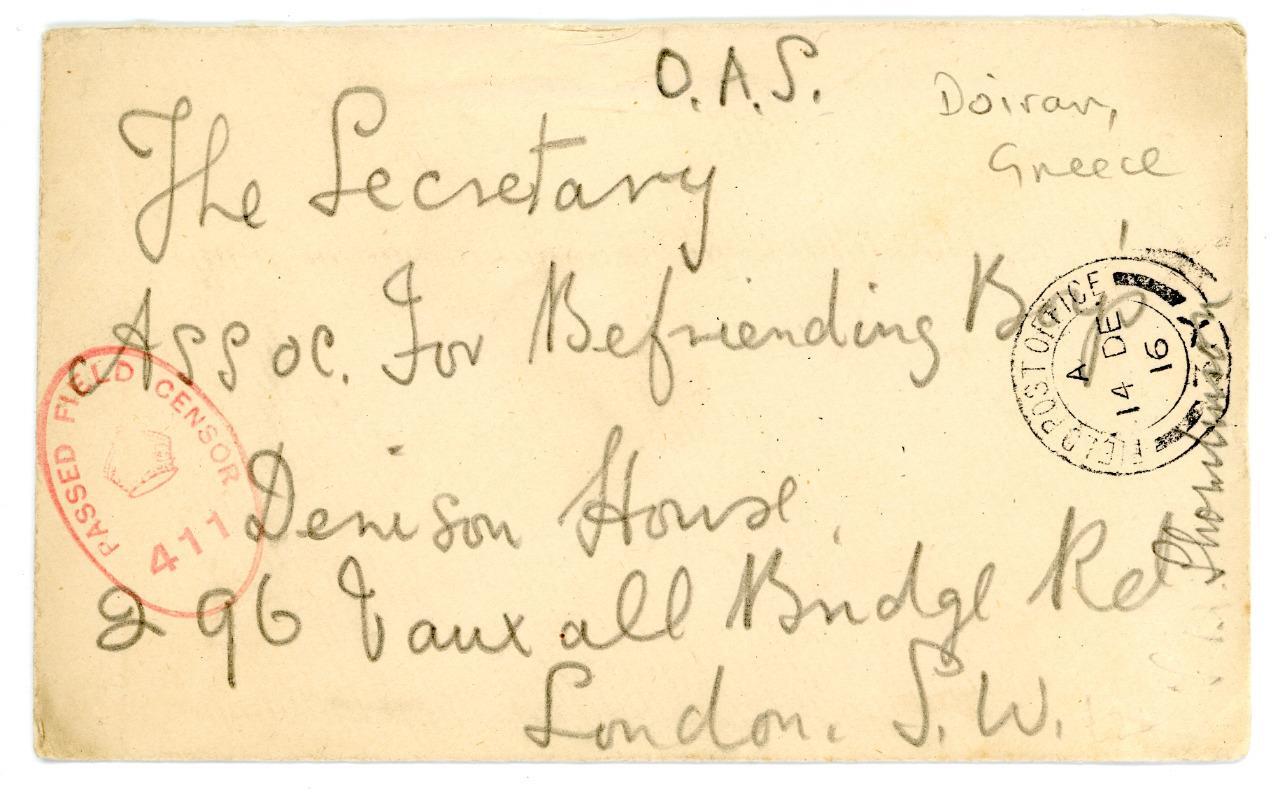 O.A.S.
Doiran,
Greece
The Secretary
Assoc. For Befriending Boys
Denison House,
296 Vauxall Bridge Rd
London. S.W.
PASSED FIELD CENSOR
411
FIELD POST OFFICE
A
14 DE
16